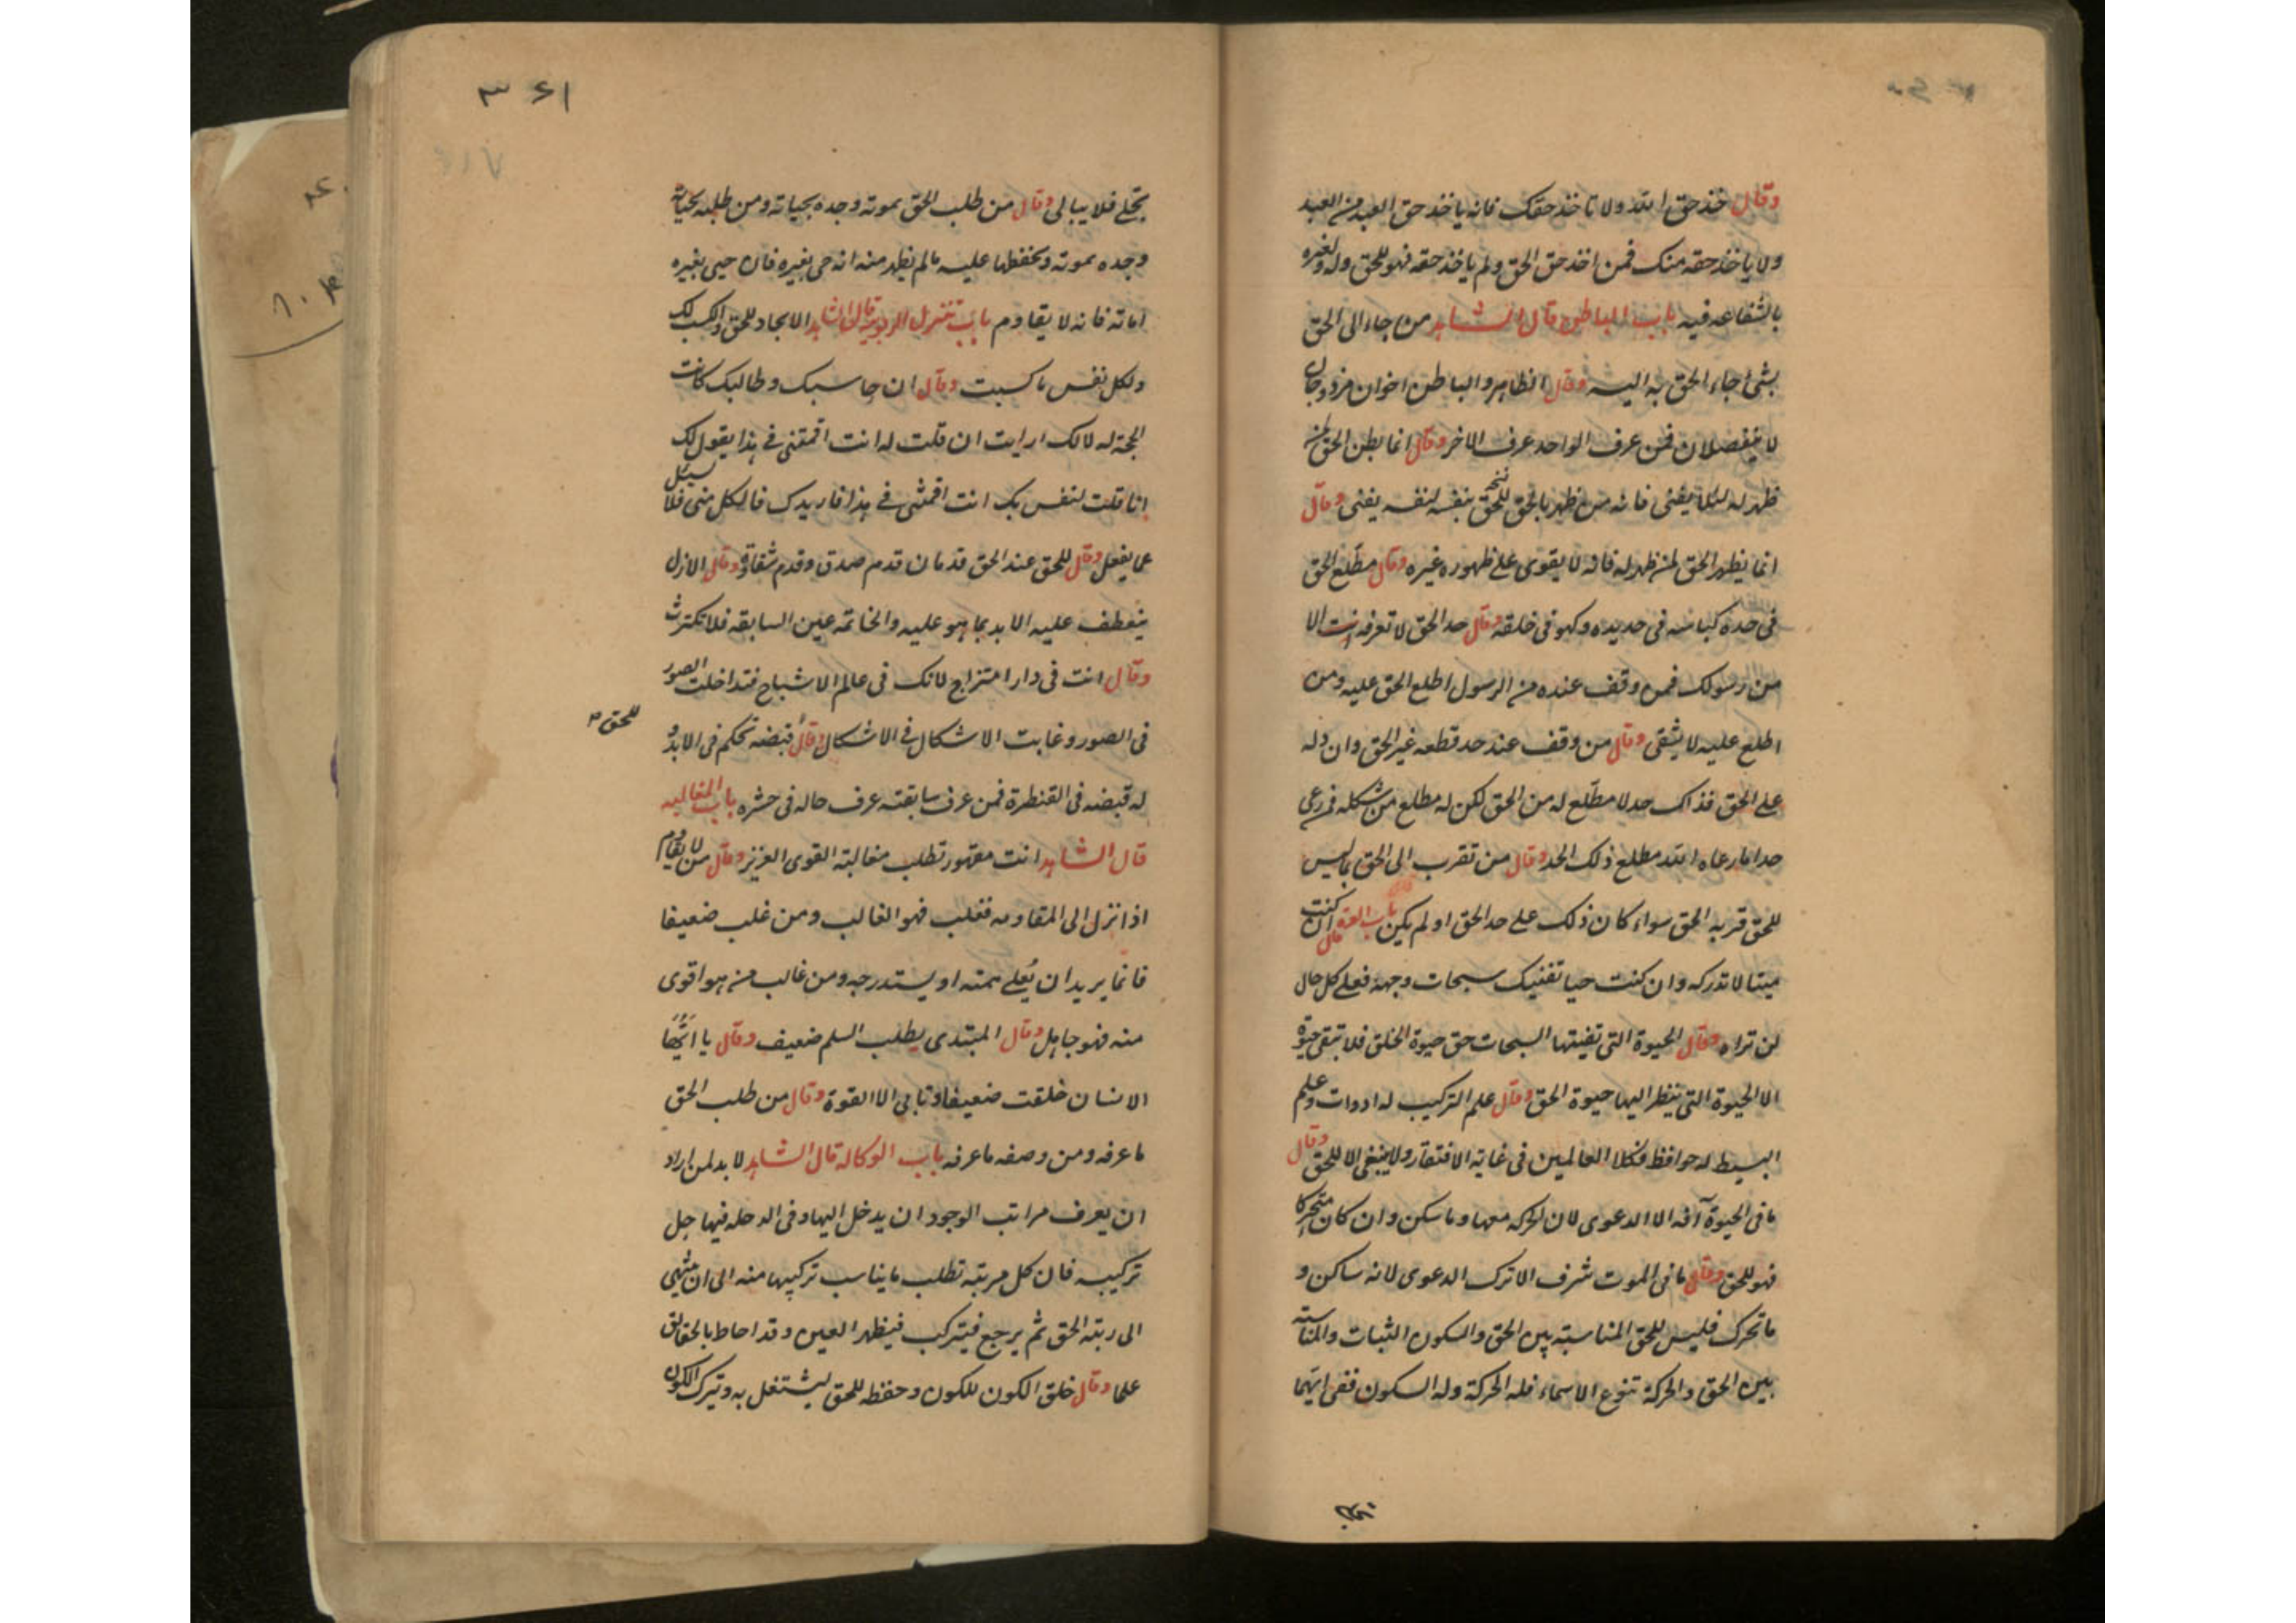 وقال خذ حق الله ولا تاخذ حقك فانه ياخذ حق العبد من العبد
ولا ياخذ حقه منك فمن اخذ حق الحق ولم ياخذ حقه فهو للحق وله ولغيره
بالشفاعه فيه باب الباطن قال الشاهد من جاء الى الحق
بشئ جاء الحق به اليه وقال الظاهر والباطن اخوان مزدوجان
لا ينفصلان فمن عرف الواحد عرف الاخر وقال انما بطن الحق لمن
ظهر له لئلا يفنى فانه من ظهر بالحق للحق بنفسه لنفسه يفنى وقال
انما يظهر الحق لمن ظهر له فانه لا يقوى على ظهوره غيره وقال مطلع الحق
فى حده كباسه فى حديده وكهو فى خلقه وقال حد الحق لا تعرفه انت الا
من رسولك فمن وقف عنده من الرسول اطلع الحق عليه ومن
اطلع عليه لا يشقى وقال من وقف عند حد قطعه غير الحق وان دله
على الحق فذاك حد لا مطلع له من الحق لكن له مطلع من شكله فمن رعى
حدا ما رعاه الله مطلع ذلك الحد وقال من تقرب الى الحق بما ليس
للحق قربه الحق سواء كان ذلك على حد الحق او لم يكن باب العزة قال ان كنت
ميتا لا تدركه وان كنت حيا تفنيك سبحات وجهه فعلى كل حال
لن تراه وقال الحيوة التى تفنيتها السبحات حق حيوة الخلق فلا تبقى حيوة
الا الحيوة التى ينظر اليها حيوة الحق وقال علم التركيب له ادوات وعلم
البسيط له حوافظ فكلا العالمين فى غاية الافتقار ولا ينبغى الا للحق وقال
ما فى الحيوة آفه الا الدعوى لان الحركه معها وما سكن وان كان متحركا
فهو للحق وقال ما فى الموت شرف الا ترك الدعوى لانه ساكن و
ما تحرك فليس للحق المناسبة بين الحق والسكون الثبات والمناسبة
بين الحق والحركة تنوع الاسماء فله الحركة وله السكون ففى ايهما
٣٦١
تجلى فلا يبالى وقال من طلب الحق بموته وجده بحياته ومن طلبه بحياته
وجده بموته ويحفظها عليه ما لم يظهر منه انه حى بغيره فان حيى بغيره
اماته فانه لا يقاوم باب تنزل الربوبية قال الشاهد الايجاد للحق والكسب لك
ولكل نفس ما كسبت وقال ان حاسبك وطالبك كانت
الحجة له لا لك ارايت ان قلت له انت اقمتنى فى هذا يقول لك
انا قلت لنفس بك انت اقمتنى فى هذا فاريدك فالكل منى فلا يسئل
عما يفعل وقال للحق عند الحق قدمان قدم صدق وقدم شقاوة وقال الازل
ينعطف عليه الابد بما هو عليه والخاتمه عين السابقه فلا تكترث
وقال انت فى دار امتزاج لانك فى عالم الاشباح فتداخلت الصور
فى الصور وغابت الاشكال فى الاشكال وقال قبضه تحكم فى الابد و
للحق
له قبضه فى القنطرة فمن عرف سابقته عرف حاله فى حشره باب المغالبه
قال الشاهد انت مقهور تطلب مغالبة القوى العزيز وقال من لا يقاوم
اذا نزل الى المقاومه فغلب فهو الغالب ومن غلب ضعيفا
فانما يريد ان يُعلى همته او يستدرجه ومن غالب من هو اقوى
منه فهو جاهل وقال المبتدى يطلب السلم ضعيف وقال يا ايها
الانسان خلقت ضعيفا وتابى الا القوة وقال من طلب الحق
ما عرفه ومن وصفه ما عرفه باب الوكالة قال الشاهد لا بد لمن اراد
ان يعرف مراتب الوجود ان يدخل اليها وفى الدخله فيها حل
تركيبه فان كل مرتبه تطلب ما يناسب تركيبها منه الى ان ينتهى
الى رتبة الحق ثم يرجع فيتركب فيظهر العين وقد احاط بالحقائق
علما وقال خلق الكون للكون وحفظه للحق ليشتغل به وترك الكون